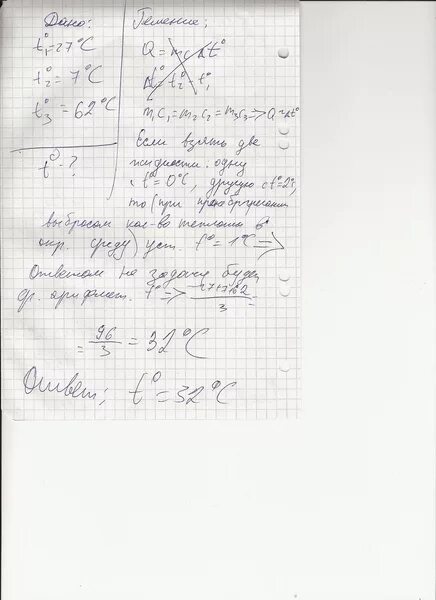 Дано:
t°₁=27°C
t°₂=7°C
t°₃=62°C
t°-?
Решение;
Q=mcΔt°
Δt° t°₂-t°₁
m₁c₁=m₂c₂=m₃c₃=>Q=Δt°
Если взять две
жидкости: одну
с t°=0°C, другую с t°=2°,
то (при пренебрегании
выбросом кол-во теплоты в
окр. среду) уст. t°=1°C=>
Ответом на задачу будет
ср. арифмет. t° => 27+7+62/3 =
= 96/3 = 32°C
Ответ; t°=32°C